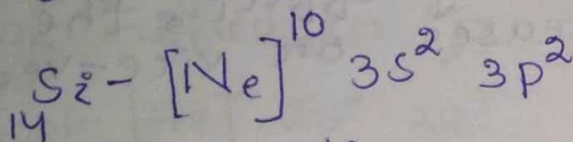 ₁₄Si - [Ne]¹⁰ 3s² 3p²